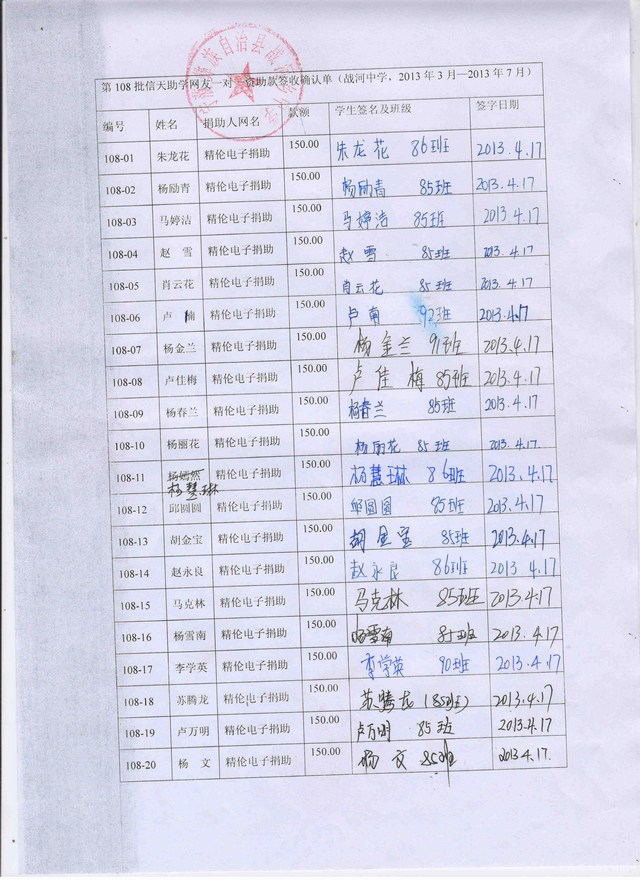 第108批信天助学网友一对一资助款签收确认单（战河中学，2013年3月—2013年7月）
编号 姓名 捐助人网名 款额 学生签名及班级 签字日期
108-01 朱龙花 精伦电子捐助 150.00 朱龙花 86班 2013.4.17
108-02 杨励青 精伦电子捐助 150.00 杨励青 85班 2013.4.17
108-03 马婷洁 精伦电子捐助 150.00 马婷洁 85班 2013.4.17
108-04 赵 雪 精伦电子捐助 150.00 赵雪 85班 2013.4.17
108-05 肖云花 精伦电子捐助 150.00 肖云花 85班 2013.4.17
108-06 卢 楠 精伦电子捐助 150.00 卢南 92班 2013.4.17
108-07 杨金兰 精伦电子捐助 150.00 杨金兰 91班 2013.4.17
108-08 卢佳梅 精伦电子捐助 150.00 卢佳梅 85班 2013.4.17
108-09 杨春兰 精伦电子捐助 150.00 杨春兰 85班 2013.4.17
108-10 杨丽花 精伦电子捐助 150.00 杨丽花 85班 2013.4.17
108-11 杨嫣然 精伦电子捐助 150.00 杨慧琳 86班 2013.4.17
杨慧琳
108-12 邱圆圆 精伦电子捐助 150.00 邱圆圆 85班 2013.4.17
108-13 胡金宝 精伦电子捐助 150.00 胡金宝 85班 2013.4.17
108-14 赵永良 精伦电子捐助 150.00 赵永良 86班 2013.4.17
108-15 马克林 精伦电子捐助 150.00 马克林 85班 2013.4.17
108-16 杨雪南 精伦电子捐助 150.00 杨雪南 85班 2013.4.17
108-17 李学英 精伦电子捐助 150.00 李学英 90班 2013.4.17
108-18 苏腾龙 精伦电子捐助 150.00 苏腾龙（85班） 2013.4.17
108-19 卢万明 精伦电子捐助 150.00 卢万明 85班 2013.4.17
108-20 杨 文 精伦电子捐助 150.00 杨文 85班 2013.4.17.